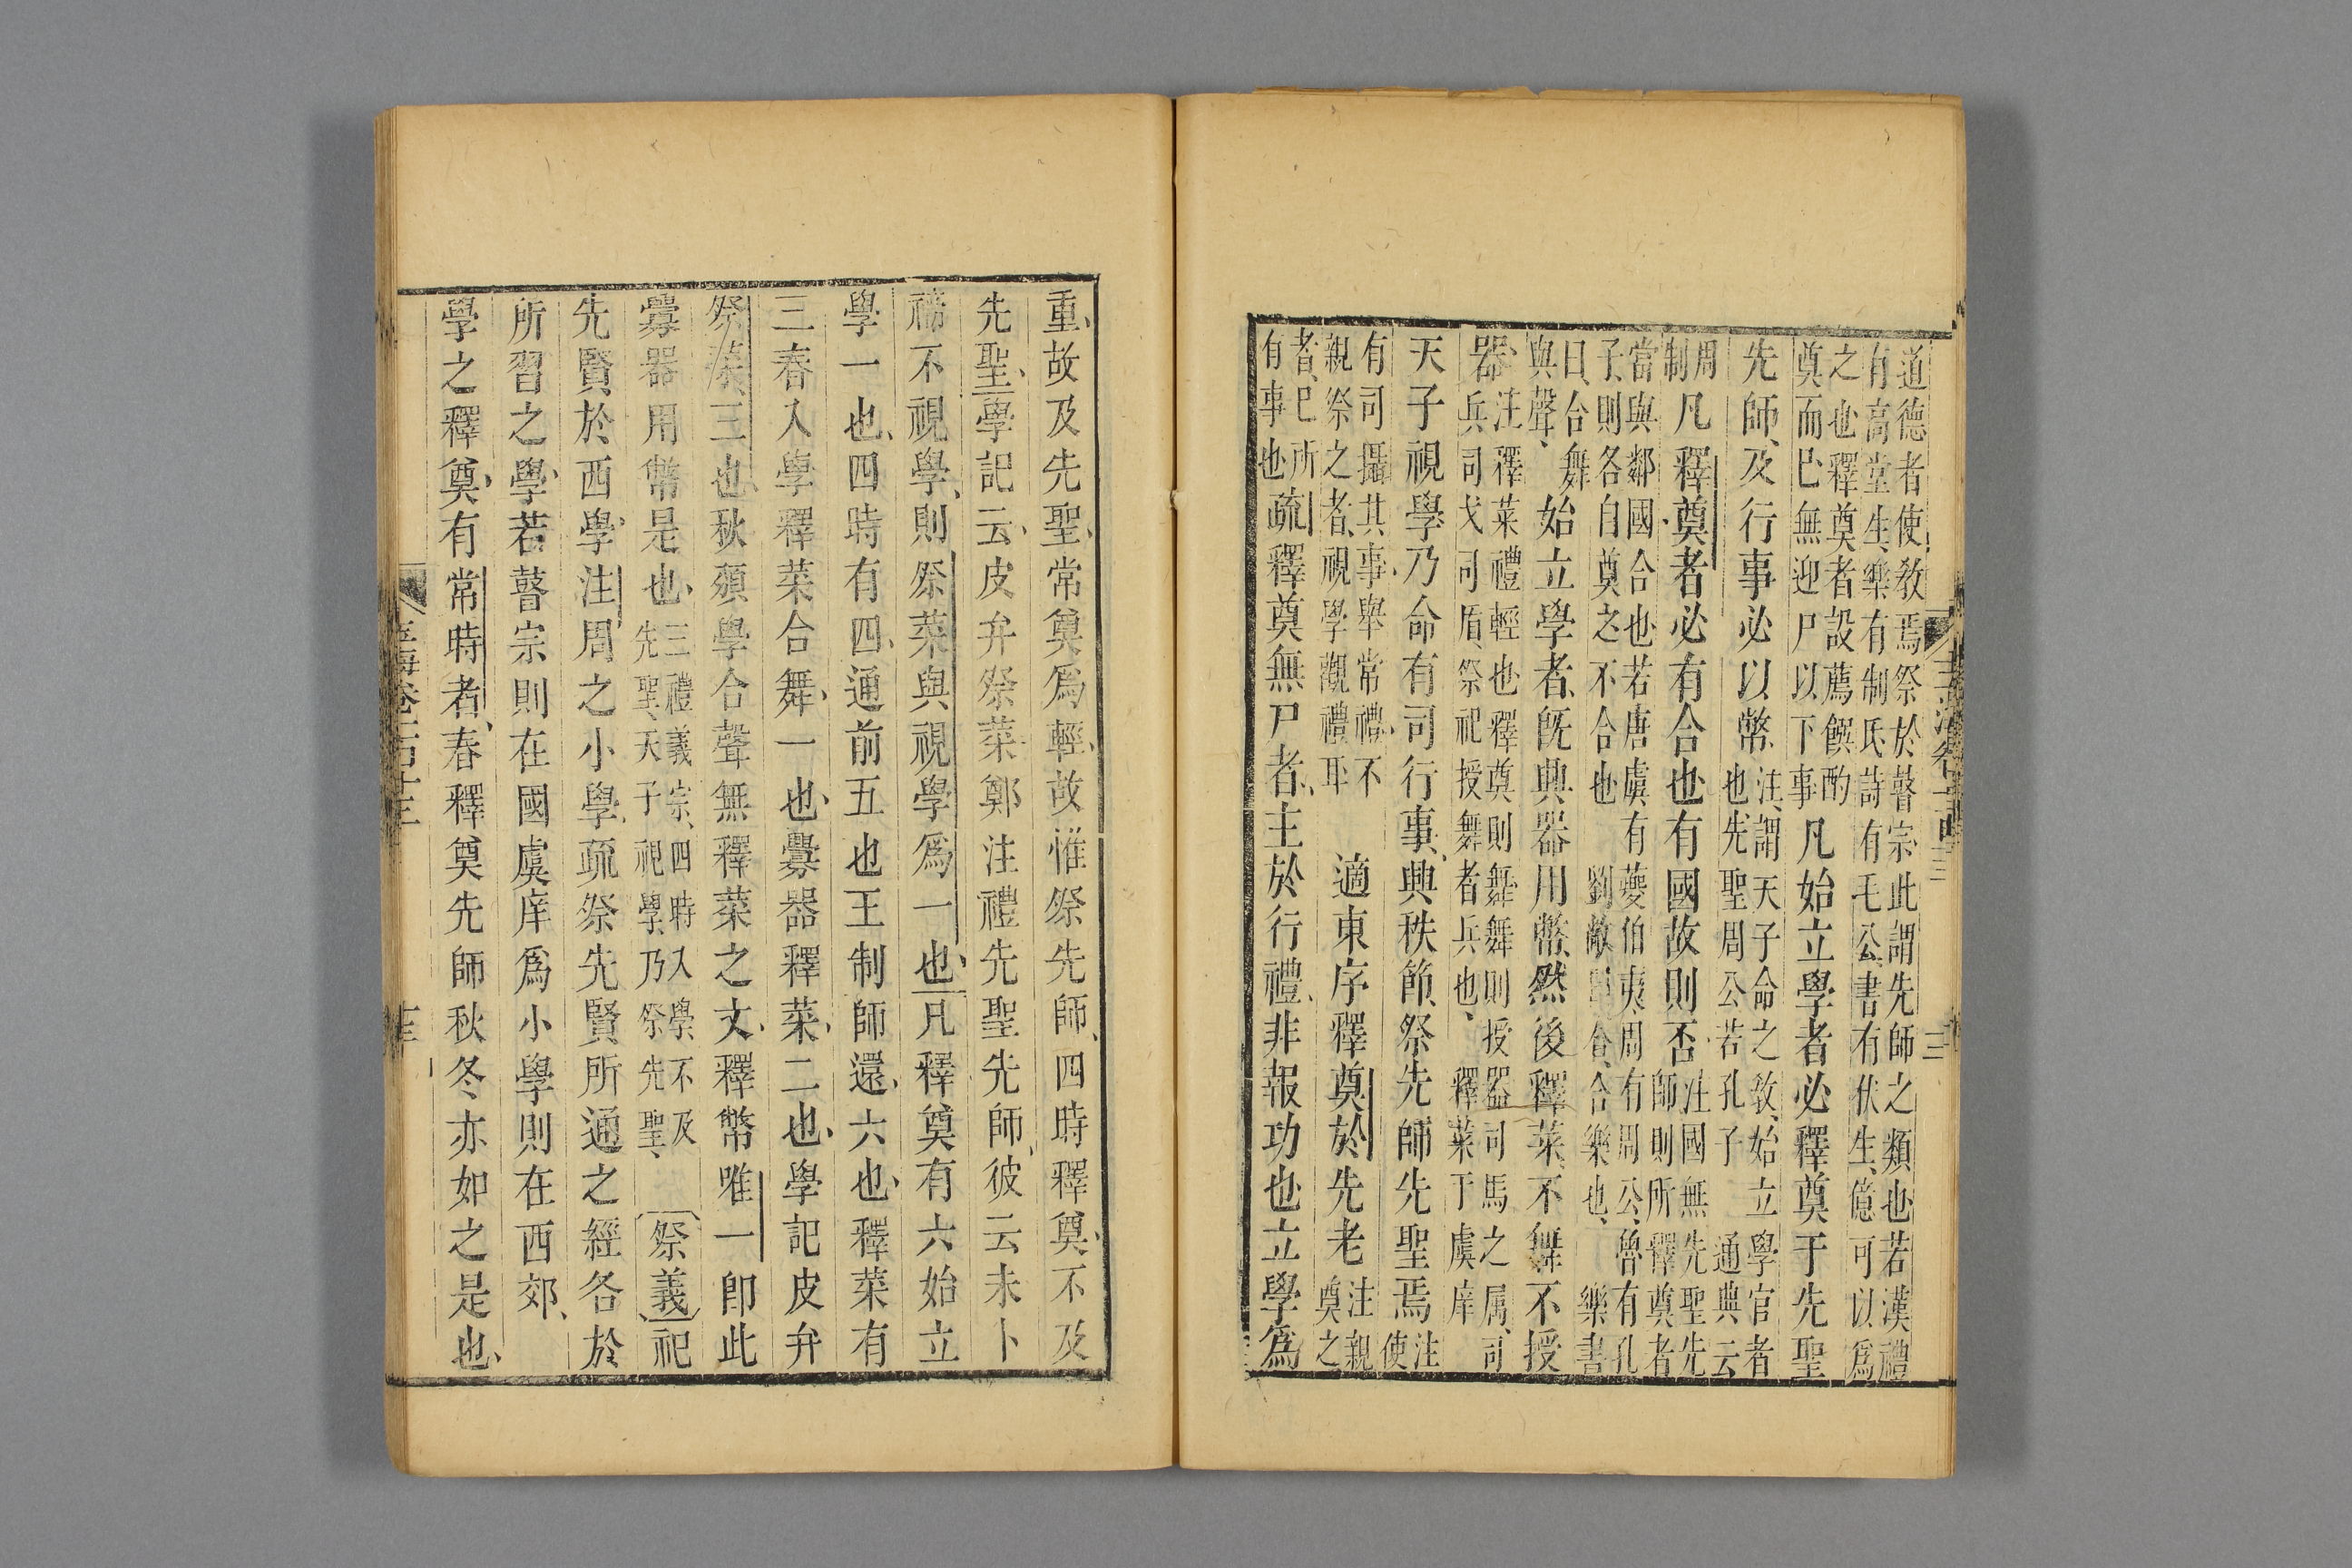 道德者使教焉祭於瞽宗此謂先師之類也若漢禮
有高堂生樂有制氏詩有毛公書有伏生億可以爲
之也釋奠者設薦饌酌
奠而已無迎尸以下事
凡始立學者必釋奠于先聖
先師、及行事必以幣
注、謂天子命之教、始立學官者
也、先聖周公若孔子　通典云
周
制
凡釋奠者必有合也有國故則否
注國無先聖先
師則所釋奠者
當與鄰國合也若唐虞有夔伯夷周有周公、魯有孔
子、則各自奠之不合也　劉敞曰合、合樂也、　樂書
日、合舞
與聲、
始立學者旣興器用幣、然後釋菜、不舞不授
器
注釋菜禮輕也釋奠則舞舞則授器司馬之属、司
兵司戈司盾、祭祀授舞者兵也、　釋菜于虞庠
天子視學乃命有司行事、興秩節、祭先師先聖焉
注
使
有司攝其事、舉常禮、不
親祭之者、視學觀禮耳
適東序釋奠於先老
注親
奠之
者、已所
有事也
疏釋奠無尸者、主於行禮、非報功也立學爲
重、故及先聖、常奠爲輕、故惟祭先師、四時釋奠、不及
先聖、學記云、皮弁祭菜鄭注禮先聖先師、彼云未卜
禘不視學、則祭菜與視學爲一也、凡釋奠有六始立
學一也、四時有四、通前五也王制師還、六也、釋菜有
三春入學釋菜合舞、一也、釁器釋菜、二也、學記皮弁
祭菜三也、秋頒學合聲無釋菜之文、釋幣唯一卽此
釁器用幣是也、
三禮義宗、四時入學不及
先聖、天子視學、乃祭先聖、
祭義祀
先賢於西學注周之小學、疏祭先賢所通之經各於
所習之學、若瞽宗則在國虞庠爲小學則在西郊、
學之釋奠、有常時者、春釋奠先師秋冬亦如之是也、